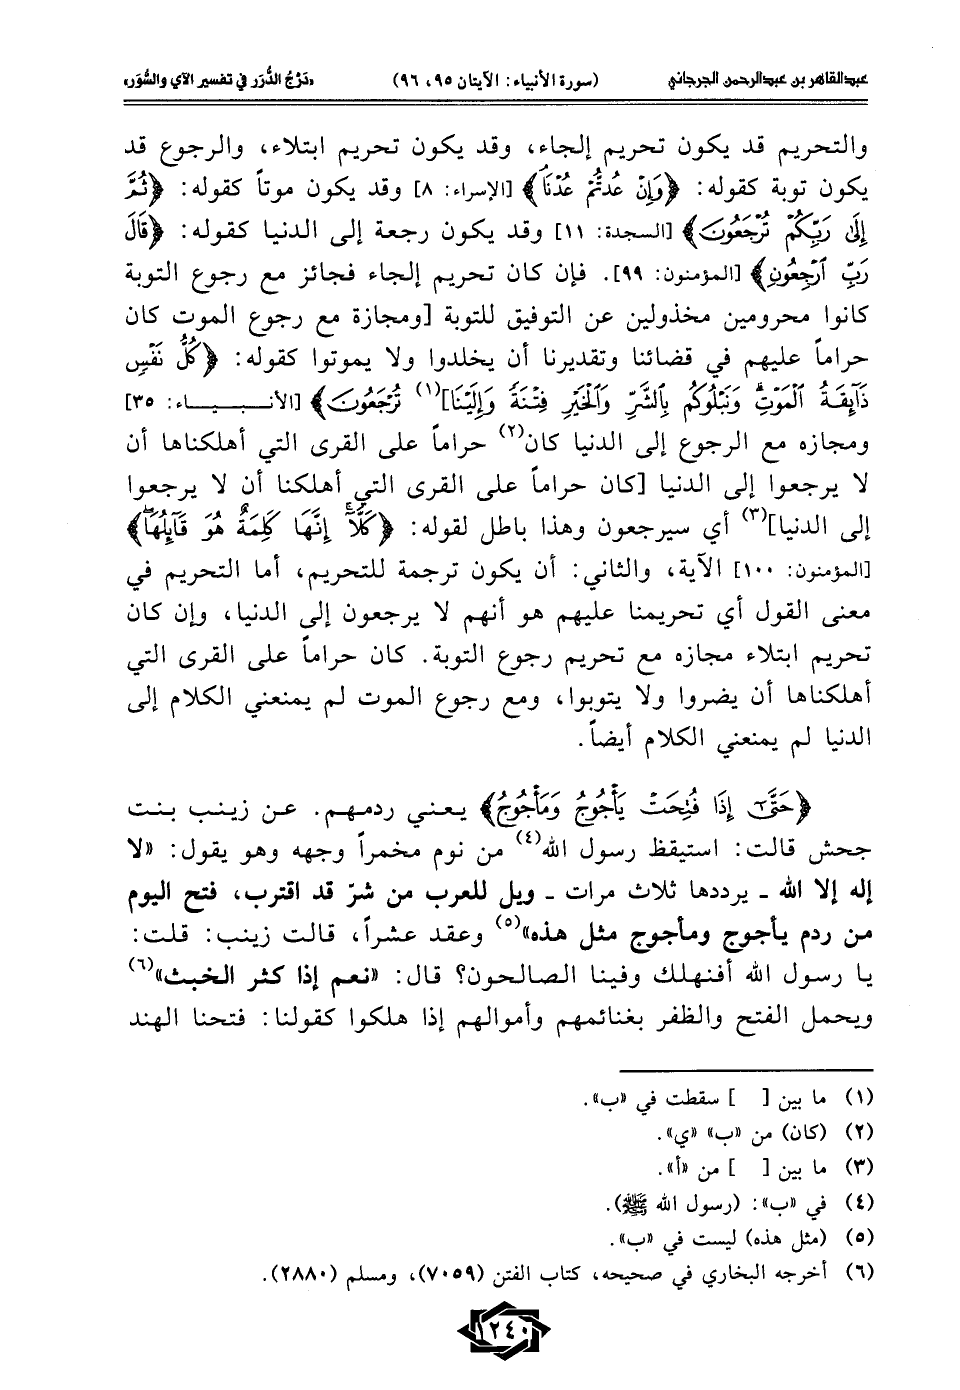 عبدالقاهر بن عبدالرحمن الجرجاني (سورة الأنبياء: الآيتان ٩٥، ٩٦) «دَرْجُ الدُّرَر في تفسير الآي والسُّوَر»
والتحريم قد يكون تحريم إلجاء، وقد يكون تحريم ابتلاء، والرجوع قد
يكون توبة كقوله: ﴿وَإِنْ عُدتُّمْ عُدْنَا﴾ [الإسراء: ٨] وقد يكون موتاً كقوله: ﴿ثُمَّ
إِلَىٰ رَبِّكُمْ تُرْجَعُونَ﴾ [السجدة: ١١] وقد يكون رجعة إلى الدنيا كقوله: ﴿قَالَ
رَبِّ ٱرْجِعُونِ﴾ [المؤمنون: ٩٩]. فإن كان تحريم إلجاء فجائز مع رجوع التوبة
كانوا محرومين مخذولين عن التوفيق للتوبة [ومجازة مع رجوع الموت كان
حراماً عليهم في قضائنا وتقديرنا أن يخلدوا ولا يموتوا كقوله: ﴿كُلُّ نَفْسٍ
ذَآئِقَةُ ٱلْمَوْتِ وَنَبْلُوكُم بِٱلشَّرِّ وَٱلْخَيْرِ فِتْنَةً وَإِلَيْنَا](١) تُرْجَعُونَ﴾ [الأنبياء: ٣٥]
ومجازه مع الرجوع إلى الدنيا كان(٢) حراماً على القرى التي أهلكناها أن
لا يرجعوا إلى الدنيا [كان حراماً على القرى التي أهلكنا أن لا يرجعوا
إلى الدنيا](٣) أي سيرجعون وهذا باطل لقوله: ﴿كَلَّآ إِنَّهَا كَلِمَةٌ هُوَ قَآئِلُهَا﴾
[المؤمنون: ١٠٠] الآية، والثاني: أن يكون ترجمة للتحريم، أما التحريم في
معنى القول أي تحريمنا عليهم هو أنهم لا يرجعون إلى الدنيا، وإن كان
تحريم ابتلاء مجازه مع تحريم رجوع التوبة. كان حراماً على القرى التي
أهلكناها أن يضروا ولا يتوبوا، ومع رجوع الموت لم يمنعني الكلام إلى
الدنيا لم يمنعني الكلام أيضاً.
﴿حَتَّىٰٓ إِذَا فُتِحَتْ يَأْجُوجُ وَمَأْجُوجُ﴾ يعني ردمهم. عن زينب بنت
جحش قالت: استيقظ رسول الله(٤) من نوم مخمراً وجهه وهو يقول: «لا
إله إلا الله ـ يرددها ثلاث مرات ـ ويل للعرب من شرّ قد اقترب، فتح اليوم
من ردم يأجوج ومأجوج مثل هذه»(٥) وعقد عشراً، قالت زينب: قلت:
يا رسول الله أفنهلك وفينا الصالحون؟ قال: «نعم إذا كثر الخبث»(٦)
ويحمل الفتح والظفر بغنائمهم وأموالهم إذا هلكوا كقولنا: فتحنا الهند
(١) ما بين [ ] سقطت في «ب».
(٢) (كان) من «ب» «ي».
(٣) ما بين [ ] من «أ».
(٤) في «ب»: (رسول الله ﷺ).
(٥) (مثل هذه) ليست في «ب».
(٦) أخرجه البخاري في صحيحه، كتاب الفتن (٧٠٥٩)، ومسلم (٢٨٨٠).
١٢٤٠